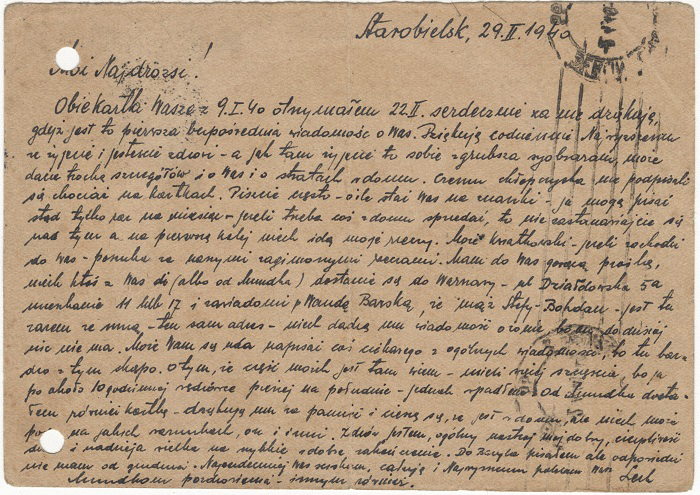 Starobielsk, 29.II.1940
Moi Najdrożsi!
Obie kartki Wasze z 9.I.40 otrzymałem 22.II. serdecznie za nie dziękuję,
gdyż jest to pierwsza bezpośrednia wiadomość o Was. Dziękuję codziennie Najwyższemu
że żyjecie i jesteście zdrowi - a jak tam żyjecie to sobie zgrubsza wyobrażam, może
dacie trochę szczegółów i o Was i o stratach z domu. Czemu chłopczyska nie podpisali
się chociaż na kartkach. Piszcie często - o ile stać Was na znaczki - ja mogę pisać
stąd tylko raz na miesiąc - jeżeli trzeba coś z domu sprzedać, to nie zastanawiajcie się
nad tym a na pierwszą kolej niech idą moje rzeczy. Może Kwiatkowski - jeżeli zachodzi
do Was - poszuka za naszymi zaginionymi rzeczami. Mam do Was gorącą prośbę,
niech ktoś z Was do (albo od Mundka) dostanie się do Warszawy - pl Działdowska 5a
mieszkanie 11 lub 17 i zawiadomi p Wandę Barską, że mąż Stefy - Bohdan - jest tu
razem ze mną - ten sam adres - niech dadzą mu wiadomość o żonie bo on do dzisiaj
nic nie ma. Może Wam się uda napisać coś ciekawego z ogólnych wiadomości, bo tu bar-
dzo z tym skąpo. O tym, że część moich jest tam wiem - mieli więcej szczęścia, bo ja
po około 10 godzinnej wędrówce pieszej na południe - jednak wpadłem. Od Mundka dosta-
łem również kartkę - dziękuję mu za pamięć i cieszę się, że jest w domu, ale niech może
na jakich warunkach, on i inni. Zdrów jestem, ogólny nastrój mój dobry, cierpliwość
i nadzieja wielka na szybkie i dobre zakończenie. Do pisałem ale odpowiedzi
nie mam od grudnia. Najserdeczniej Was ściskam, całuję i Najwyższemu polecam Was Lech
Mundkom pozdrowienia - innym również.